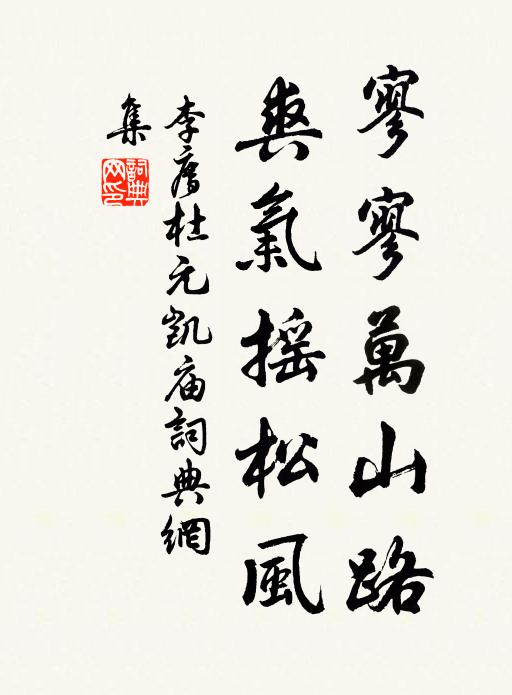 寥寥萬山路
爽氣搖松風
李廌杜元凱庙詞典網
集
詞典網印